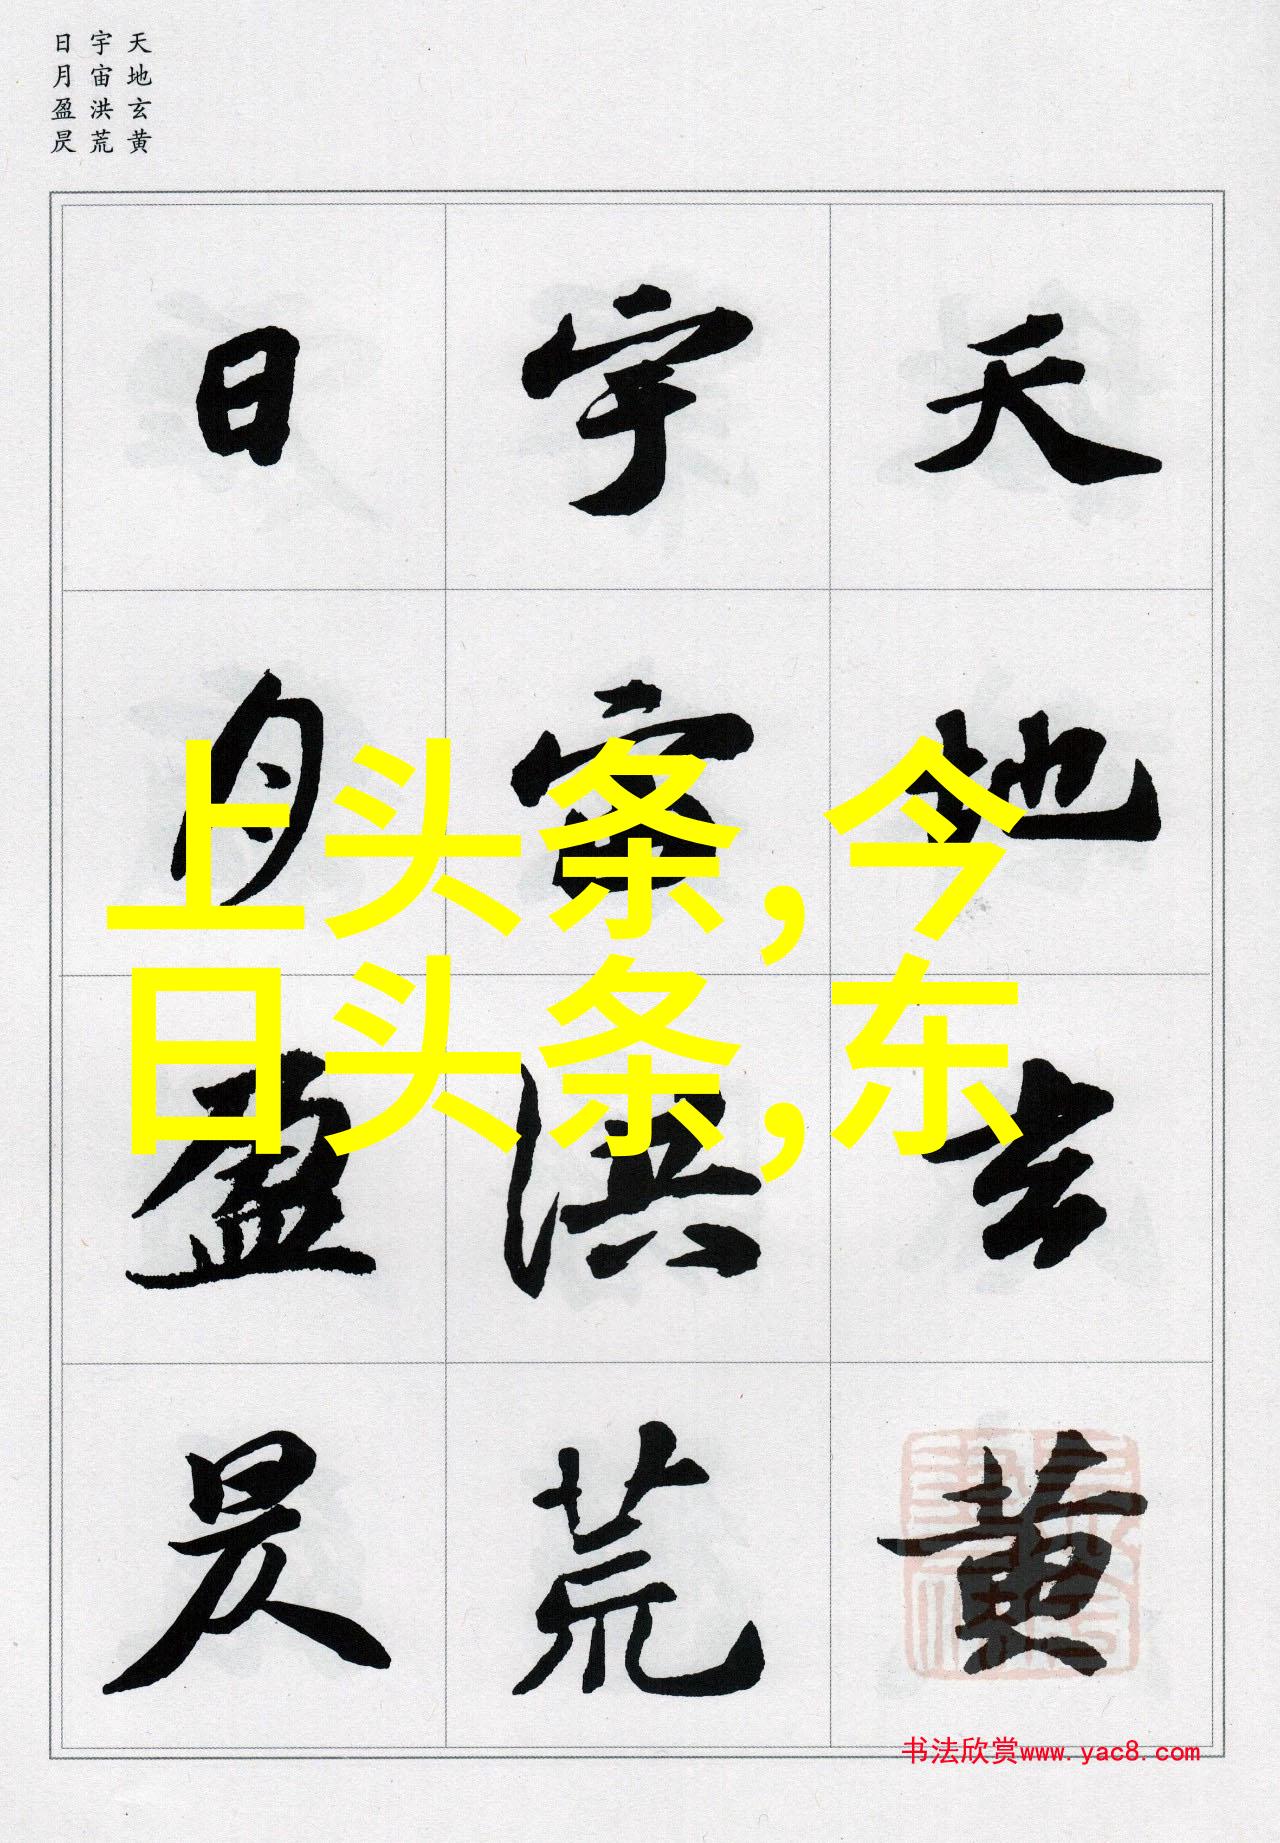 天地玄黄
宇宙洪荒
日月盈昃
天地玄黄
宇宙洪荒
日月盈昃
上头条,今
日头条,东
书法欣赏www.yac8.com